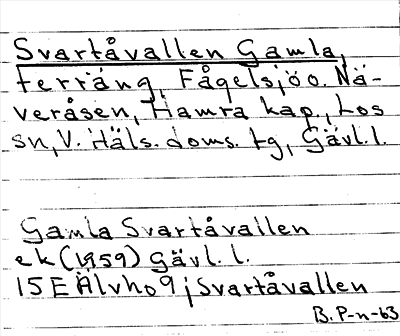 Svartåvallen Gamla,
terräng, Fågelsjö o. Nä-
veråsen, Hamra kap., Los
sn, V. Häls. doms. tg, Gävl. l.
Gamla Svartåvallen
ek (1959) Gävl. l.
15E Älvho 9j Svartåvallen
B. P-n-63